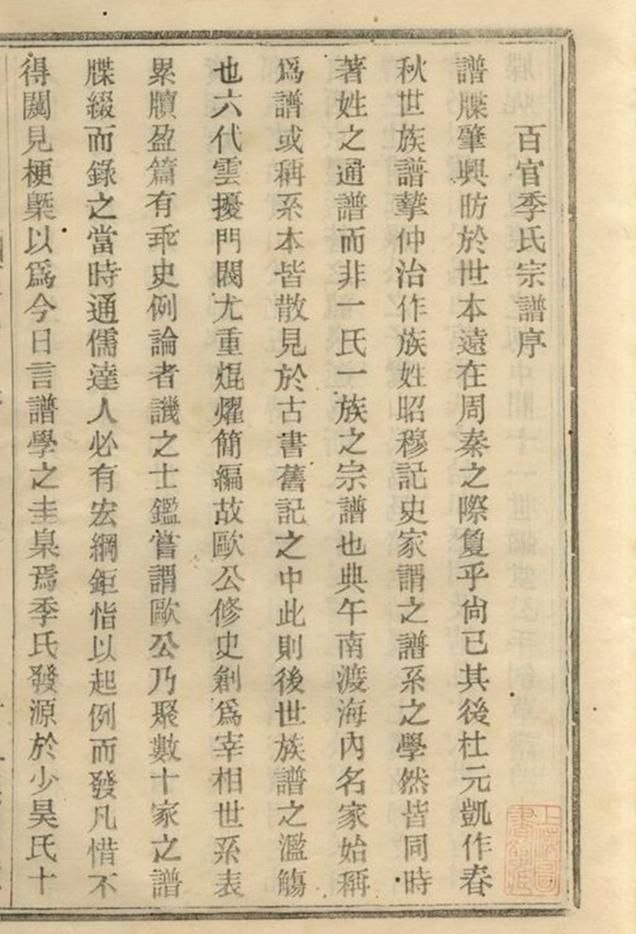 百官季氏宗譜序
譜牒肇興昉於世本遠在周秦之際敻乎尙已其後杜元凱作春
秋世族譜摯仲治作族姓昭穆記史家謂之譜系之學然皆同時
著姓之通譜而非一氏一族之宗譜也典午南渡海內名家始稱
爲譜或稱系本皆散見於古書舊記之中此則後世族譜之濫觴
也六代雲擾門閥尤重焜燿簡編故歐公修史創爲宰相世系表
累牘盈篇有乖史例論者譏之士鑑嘗謂歐公乃聚數十家之譜
牒綴而錄之當時通儒達人必有宏綱鉅恉以起例而發凡惜不
得闚見梗槩以爲今日言譜學之圭臬焉季氏發源於少昊氏十